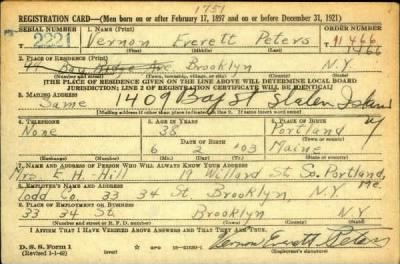 1751
REGISTRATION CARD—(Men born on or after February 17, 1897 and on or before December 31, 1921)
SERIAL NUMBER 1. NAME (Print) ORDER NUMBER
2221 Vernon Everett Peters 11466
1466
(First) (Middle) (Last)
2. PLACE OF RESIDENCE (Print)
Brooklyn N.Y.
(Number and street) (Town, township, village, or city) (County) (State)
[THE PLACE OF RESIDENCE GIVEN ON THE LINE ABOVE WILL DETERMINE LOCAL BOARD
JURISDICTION; LINE 2 OF REGISTRATION CERTIFICATE WILL BE IDENTICAL]
3. MAILING ADDRESS
Same 1409 Bay St Staten Island
NY
[Mailing address if other than place indicated on line 2. If same insert word same]
4. TELEPHONE 5. AGE IN YEARS 6. PLACE OF BIRTH
None 38 Portland
DATE OF BIRTH (Town or county)
6 2 '03 Maine
(Exchange) (Number) (Mo.) (Day) (Yr.) (State or country)
7. NAME AND ADDRESS OF PERSON WHO WILL ALWAYS KNOW YOUR ADDRESS
Mrs. E. H. Hill 19 Willard St. So. Portland, Me.
8. EMPLOYER'S NAME AND ADDRESS
Todd Co. 33 34 St. Brooklyn, N.Y.
9. PLACE OF EMPLOYMENT OR BUSINESS
33 34 St. Brooklyn N.Y.
(Number and street or R. F. D. number) (Town) (County) (State)
I AFFIRM THAT I HAVE VERIFIED ABOVE ANSWERS AND THAT THEY ARE TRUE.
D. S. S. Form 1
(Revised 1-1-42) (over)
Vernon Everett Peters
(Registrant's signature)